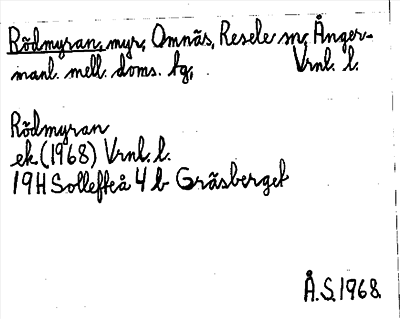 Rödmyran, myr, Omnäs, Resele sn, Ånger-
manl. mell. doms. hg, Vrnl. l.
Rödmyran
ek (1968) Vrnl. l.
19H Sollefteå 4 b Gräsberget
Å.S. 1968.